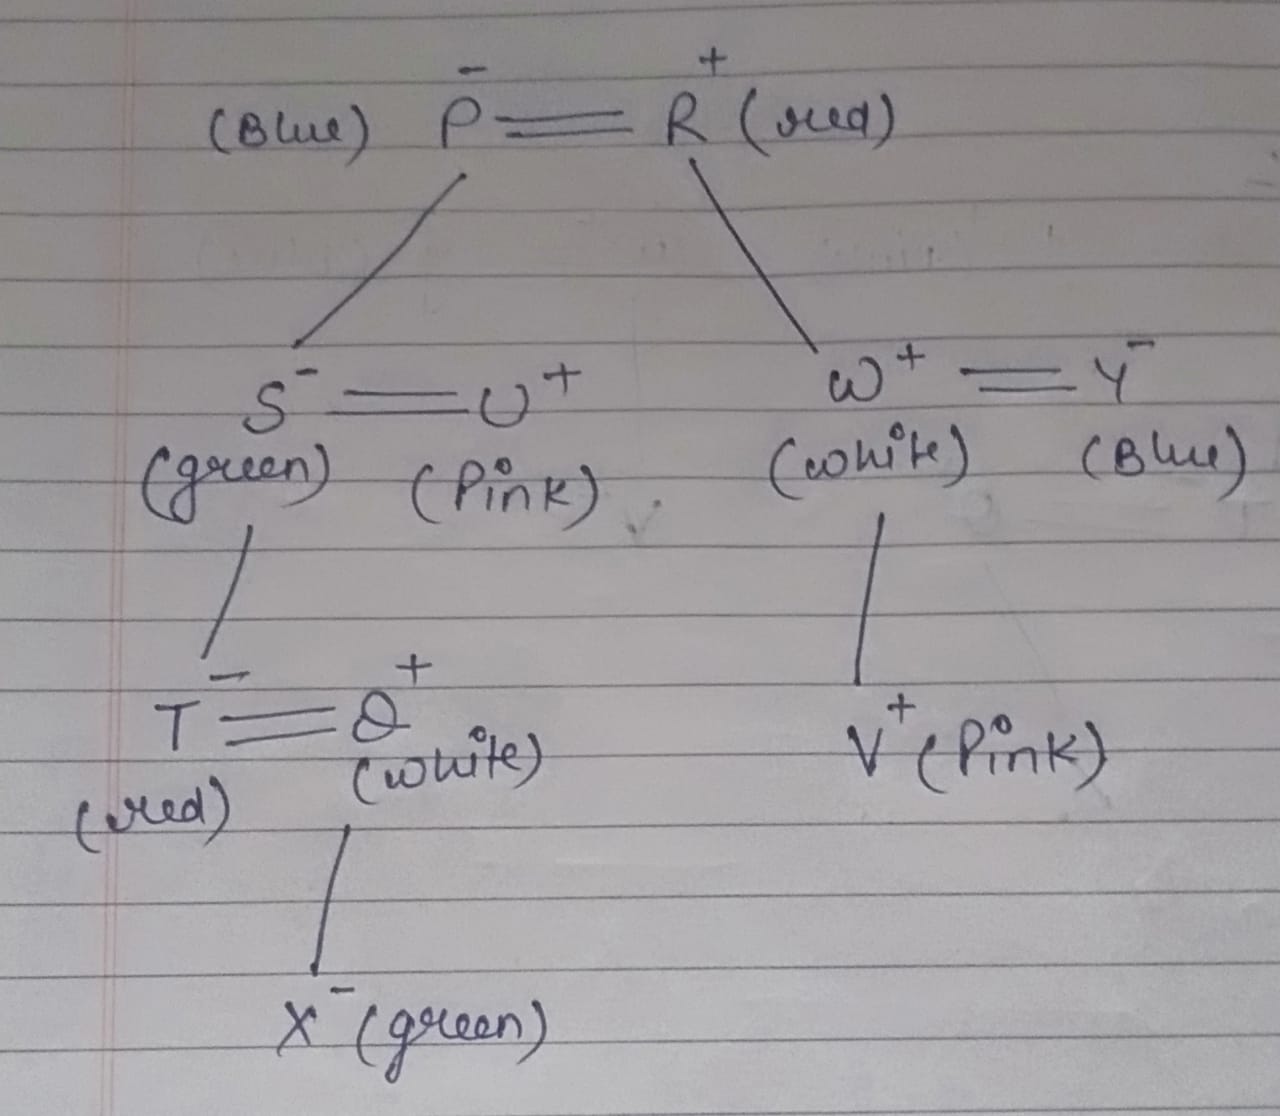 (Blue) P⁻ = R⁺ (red)
S⁻ = U⁺ W⁺ = Y⁻
(green) (Pink) (white) (Blue)
T⁻ = Q⁺ V⁺ (Pink)
(white)
(red)
X⁻ (green)